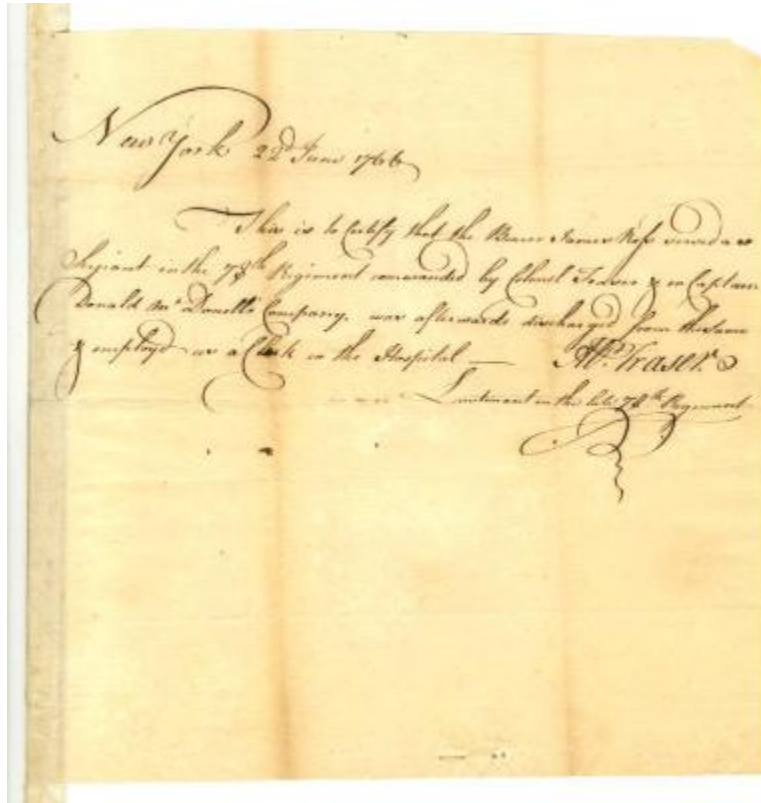 New York 22d June 1766
This is to Certify that the Bearer James Ross served as
Sergiant in the 78th Regiment commanded by Colonel Fraser & in Captain
Donald McDonell's Company, was afterwards discharged from the same
& employd as a Clerk in the Hospital —
Fraser
Lieutenant in the late 78th Regiment